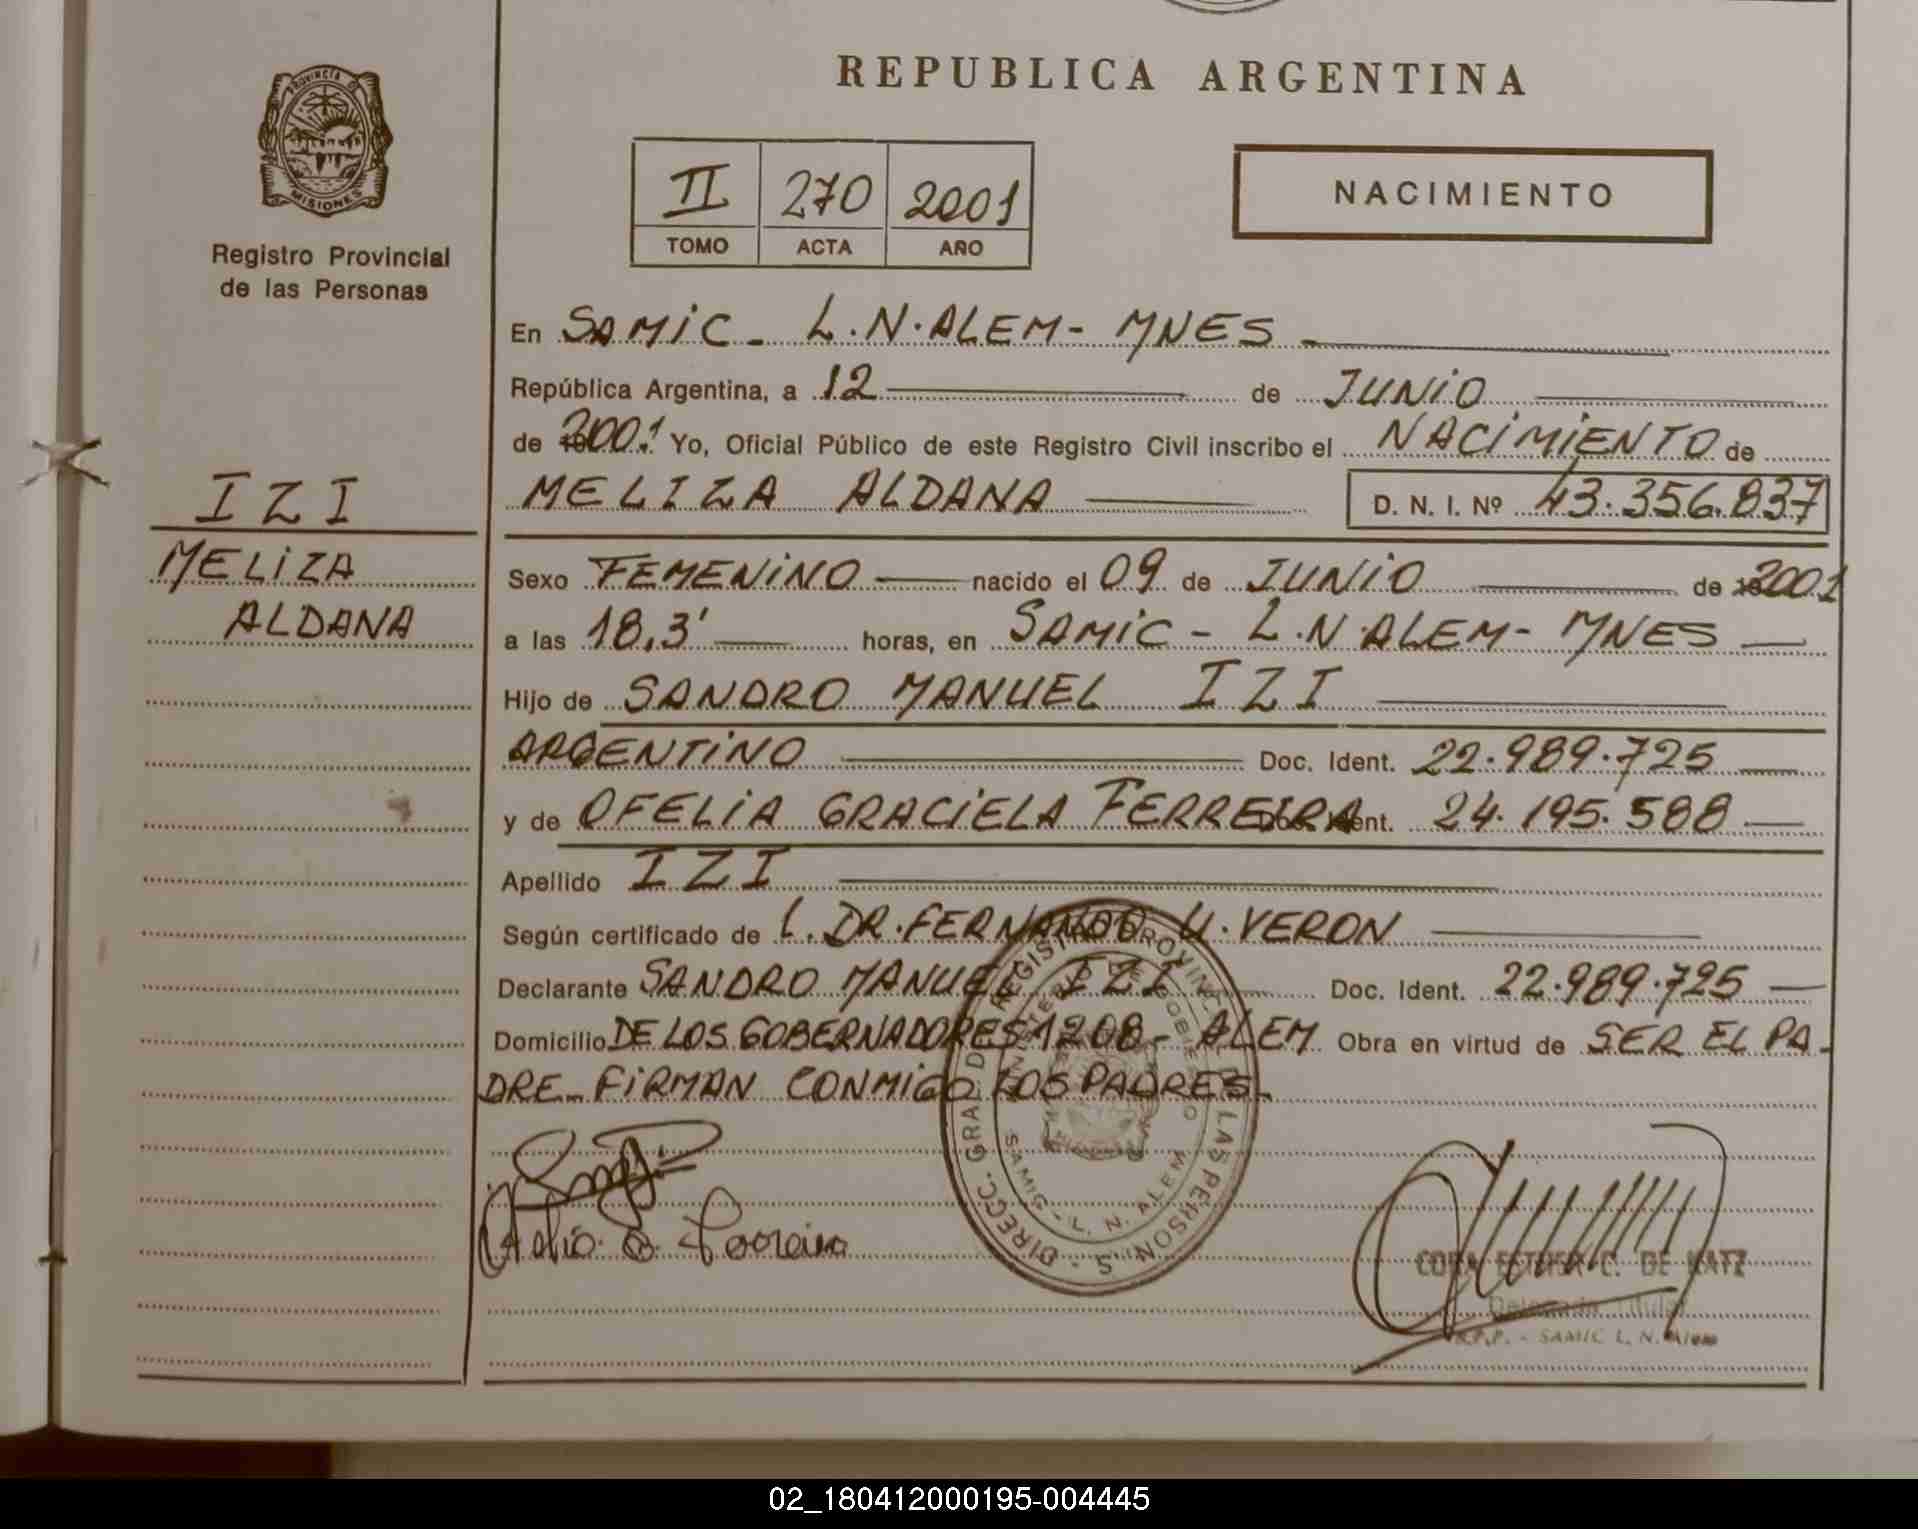 REPUBLICA ARGENTINA
PROVINCIA DE MISIONES
Registro Provincial
de las Personas
II 270 2001
TOMO ACTA AÑO
NACIMIENTO
En SAMIC - L.N.ALEM - MNES -
República Argentina, a 12 de JUNIO
de 2001. Yo, Oficial Público de este Registro Civil inscribo el NACIMIENTO de
MELIZA ALDANA D. N. I. Nº 43.356.837
IZI
MELIZA
ALDANA
Sexo FEMENINO nacido el 09 de JUNIO de 2001
a las 18,3' horas, en SAMIC - L.N.ALEM - MNES
Hijo de SANDRO MANUEL IZI
ARGENTINO Doc. Ident. 22.989.725
y de OFELIA GRACIELA FERREIRA Doc. Ident. 24.195.588
Apellido IZI
Según certificado de L. DR. FERNANDO U. VERON
Declarante SANDRO MANUEL IZI Doc. Ident. 22.989.725
Domicilio DE LOS GOBERNADORES 1208 - ALEM Obra en virtud de SER EL PA-
DRE - FIRMAN CONMIGO LOS PADRES.
DIRECC. GRAL. DEL REGISTRO PROVINCIAL DE LAS PERSONAS
MINISTERIO DE GOBIERNO
SAMIC - L. N. ALEM
ESTHER C. DE KATZ
Delegada Titular
R.P.P. - SAMIC L. N. Alem
02_180412000195-004445